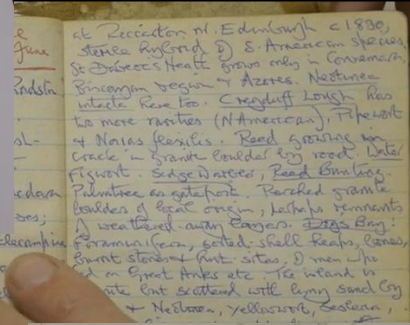 June
at Riccarton nr. Edinburgh c 1830,
sterile hybrid of S. American species,
St Dabeoc's Heath grows only in Connemara,
Biscayan region & Azores. Neotinea
intacta here too. Cregduff Lough has
two more rarities (N American), Pipewort
& Naias flexilis. Reed growing in
crack in granite boulder by road. Water
Figwort. Sedge Warbler, Reed Bunting.
Palmtree as gatepost. Perched granite
boulder of local origin, perhaps remnants
of weathered away layers. Dogs Bay:
foraminifera, sorted shell heaps, bones,
burnt stones & hut sites, of men who
fed on Great Auks etc. The inland is
but scattered with limy sand by
& Neotinea, Yellowwort, Sesleria,
elecampine